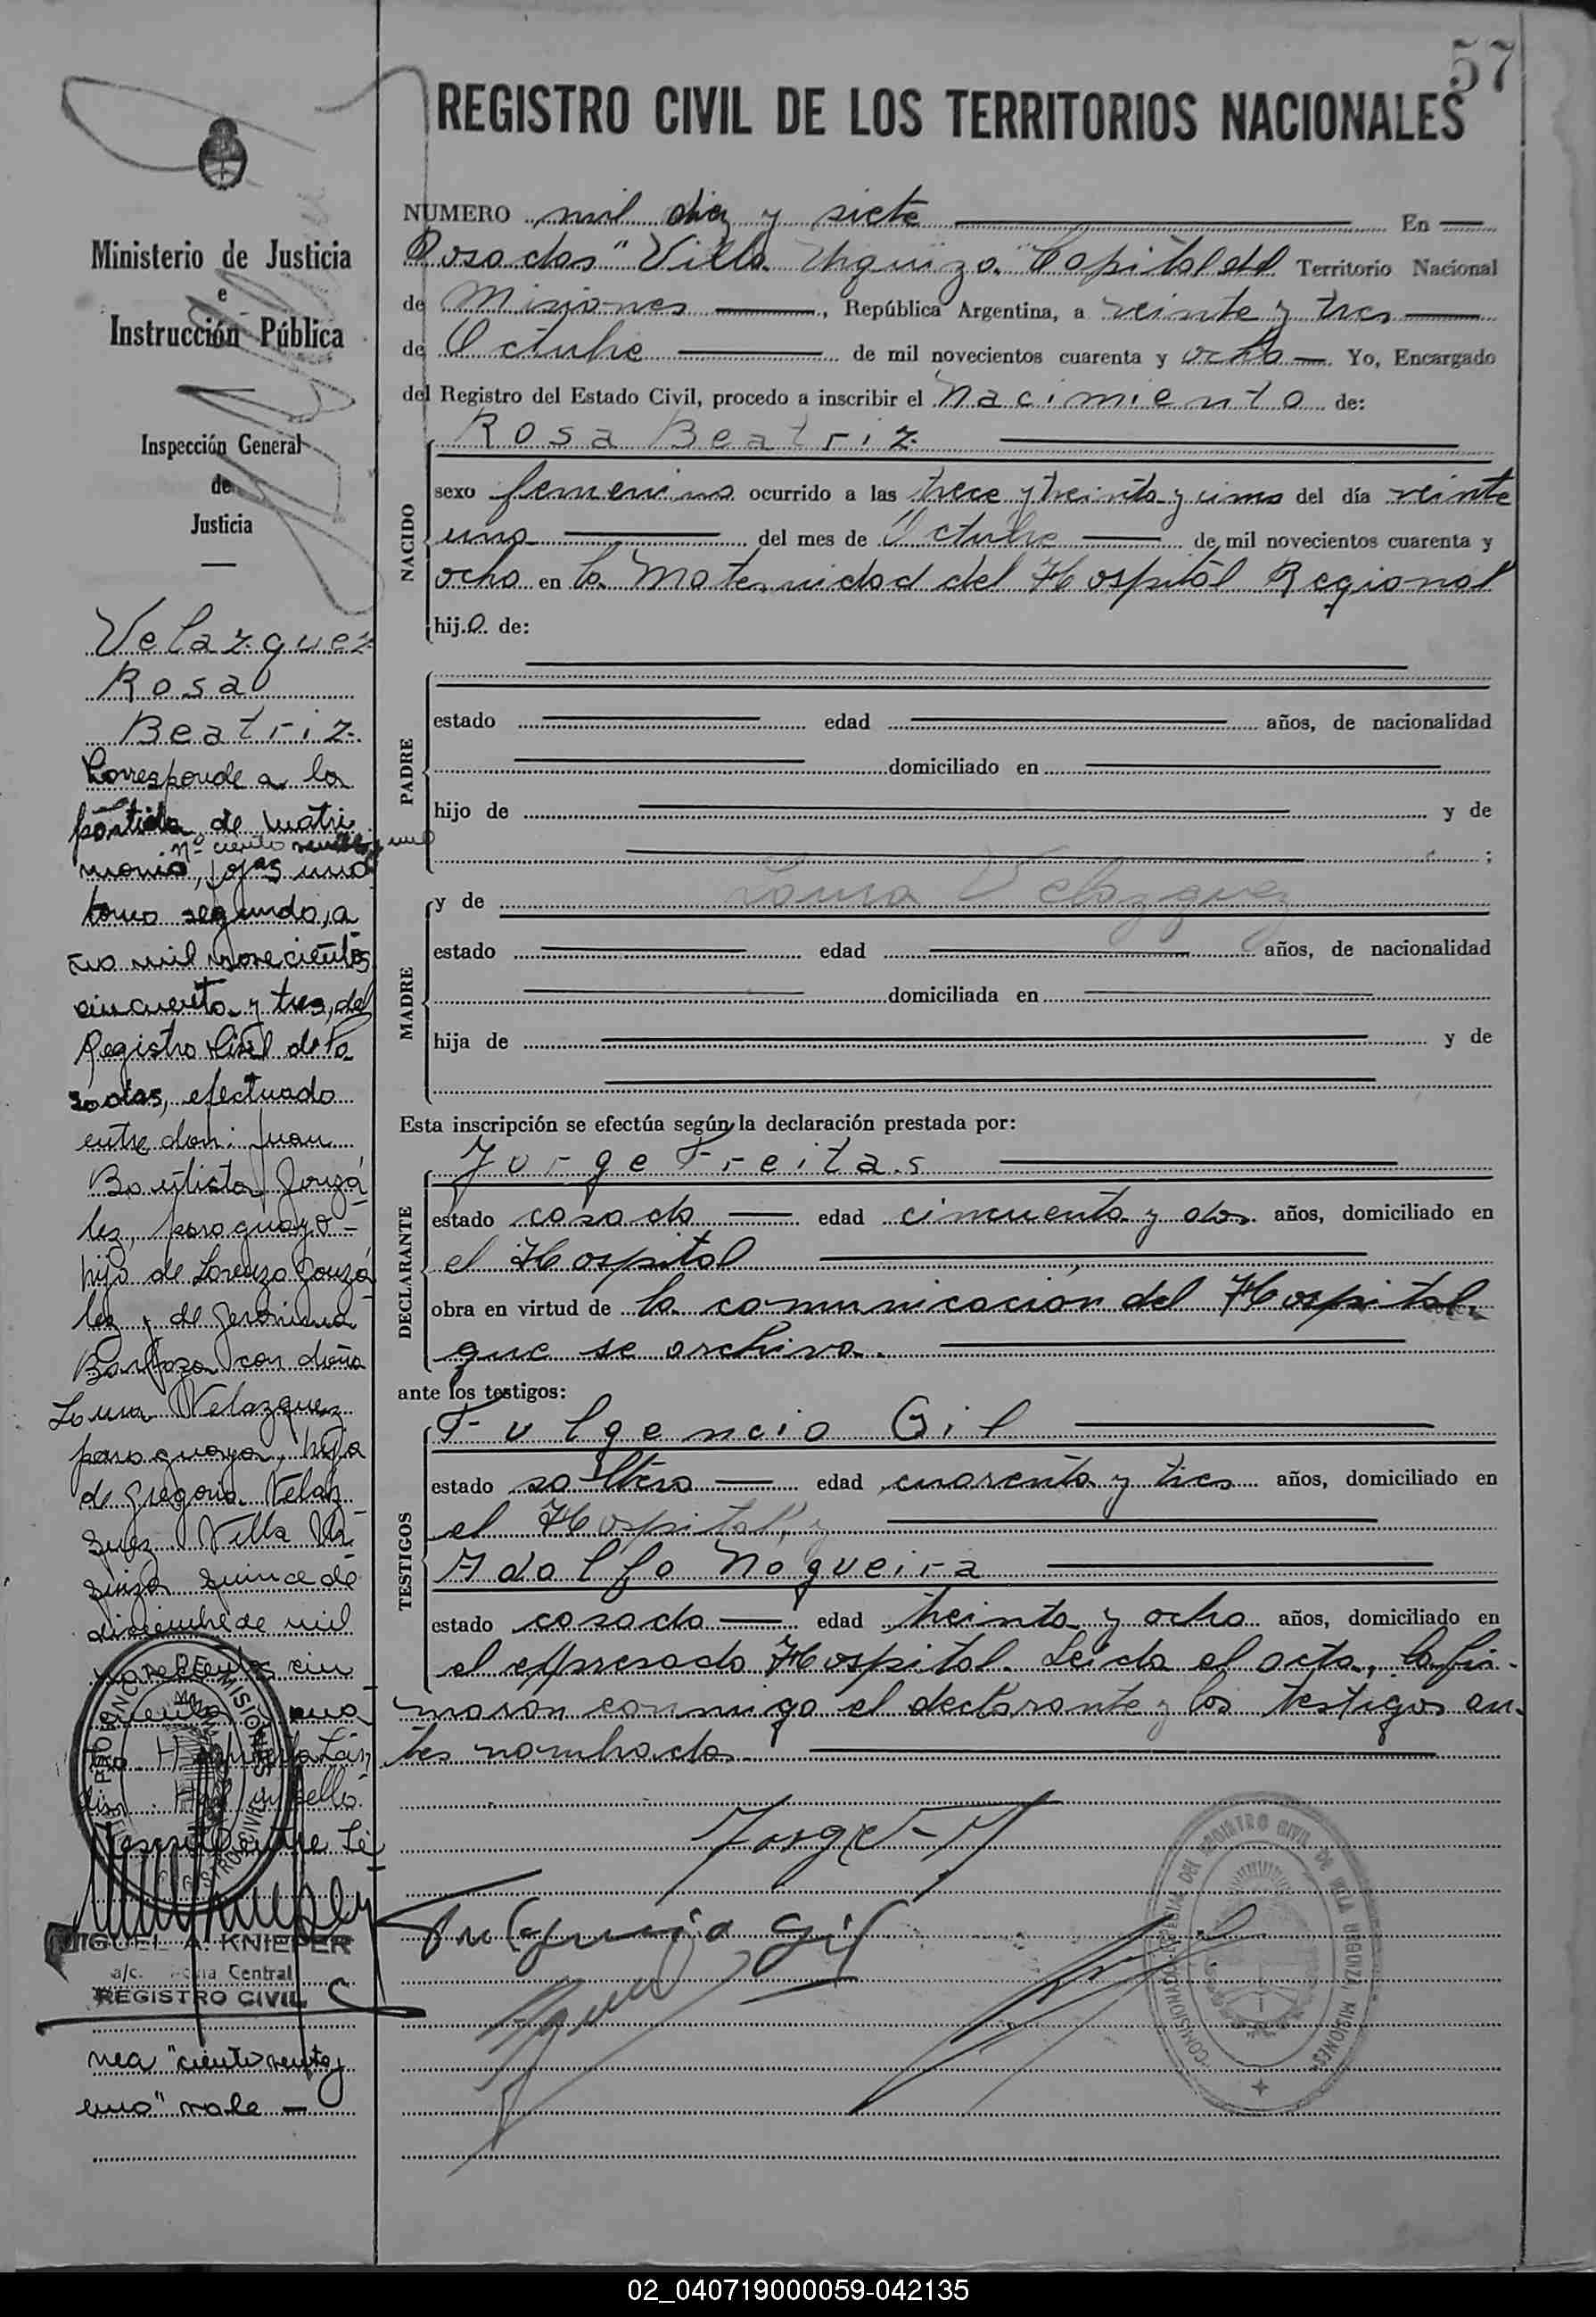 57
REGISTRO CIVIL DE LOS TERRITORIOS NACIONALES
Ministerio de Justicia
e
Instrucción Pública
Inspección General
de
Justicia
Velazquez
Rosa
Beatriz
Corresponde a la
partida de matri
nº ciento veinte y uno
monio, fojas uno
tomo segundo, a
ño mil novecientos
cincuenta y tres, del
Registro Civil de Po
sadas, efectuado
entre don: Juan
Bautista Gonzá
lez, paraguayo
hijo de Lorenzo Gonzá
lez y de Jeronima
con doña
Velazquez
paraguaya, hija
de Gregoria Velaz
quez Villa Ur
quiza quince de
diciembre de mil
novecientos cin
cuenta
Hay un sello
entre Lí
MIGUEL A. KNIEPER
a/c. Central
REGISTRO CIVIL
nea "ciento veinte y
uno" vale —
PROVINCIA DE MISIONES
NUMERO mil diez y siete En
Posadas "Villa Urquiza" Capital del Territorio Nacional
de Misiones, República Argentina, a veinte y tres
de Octubre de mil novecientos cuarenta y ocho Yo, Encargado
del Registro del Estado Civil, procedo a inscribir el Nacimiento de:
NACIDO
Rosa Beatriz
sexo femenino ocurrido a las trece y treinta y cinco del día veinte
uno del mes de Octubre de mil novecientos cuarenta y
ocho en la Maternidad del Hospital Regional
hija de:
PADRE
estado edad años, de nacionalidad
domiciliado en
hijo de y de
;
MADRE
y de Velazquez
estado edad años, de nacionalidad
domiciliada en
hija de y de
Esta inscripción se efectúa según la declaración prestada por:
DECLARANTE
Jorge Freitas
estado casado edad cincuenta y dos años, domiciliado en
el Hospital
obra en virtud de la comunicación del Hospital
que se archiva.
ante los testigos:
TESTIGOS
Fulgencio Gil
estado soltero edad cuarenta y tres años, domiciliado en
el Hospital, y
Adolfo Nogueira
estado casado edad treinta y ocho años, domiciliado en
el expresado Hospital. Leida el acta, la fir-
maron conmigo el declarante y los testigos an-
tes nombrados.
Fulgencio Gil
COMISIONADO ESPECIAL DEL REGISTRO CIVIL DE VILLA URQUIZA, MISIONES
02_040719000059-042135